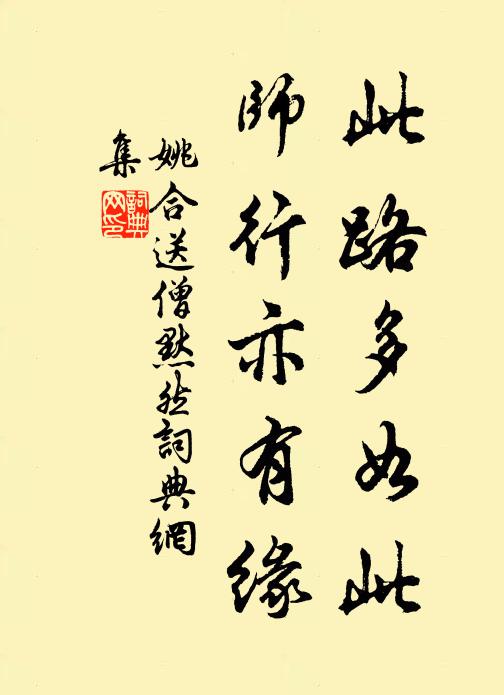 此路多如此
師行亦有緣
姚合送僧默然詞典網
集
詞典
网印